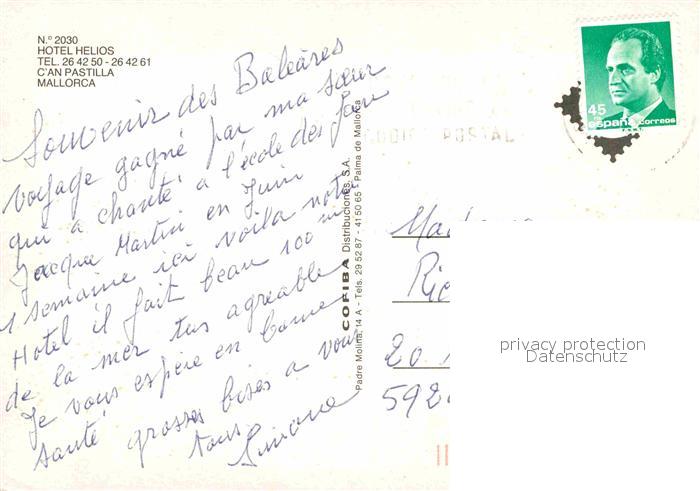 N.º 2030
HOTEL HELIOS
TEL. 26 42 50 - 26 42 61
C'AN PASTILLA
MALLORCA
Souvenir des Baleàres
voyage gagné par ma sœur
qui a chanté a l'école des fans
Jacque Martin en Juin
1 semaine ici voila notre
Hotel il fait beau 100 m
de la mer tres agreable
Je vous espère en bonne
santé grosses bises a vous
tous
Simone
COFIBA Distribuciones, S.A.
Padre Molina, 14 A - Tels. 29 52 87 - 41 50 65 - Palma de Mallorca
CODIGO POSTAL
45
PTA
españa correos
F.N.M.T.
Mad
Ric
20
592
privacy protection
Datenschutz